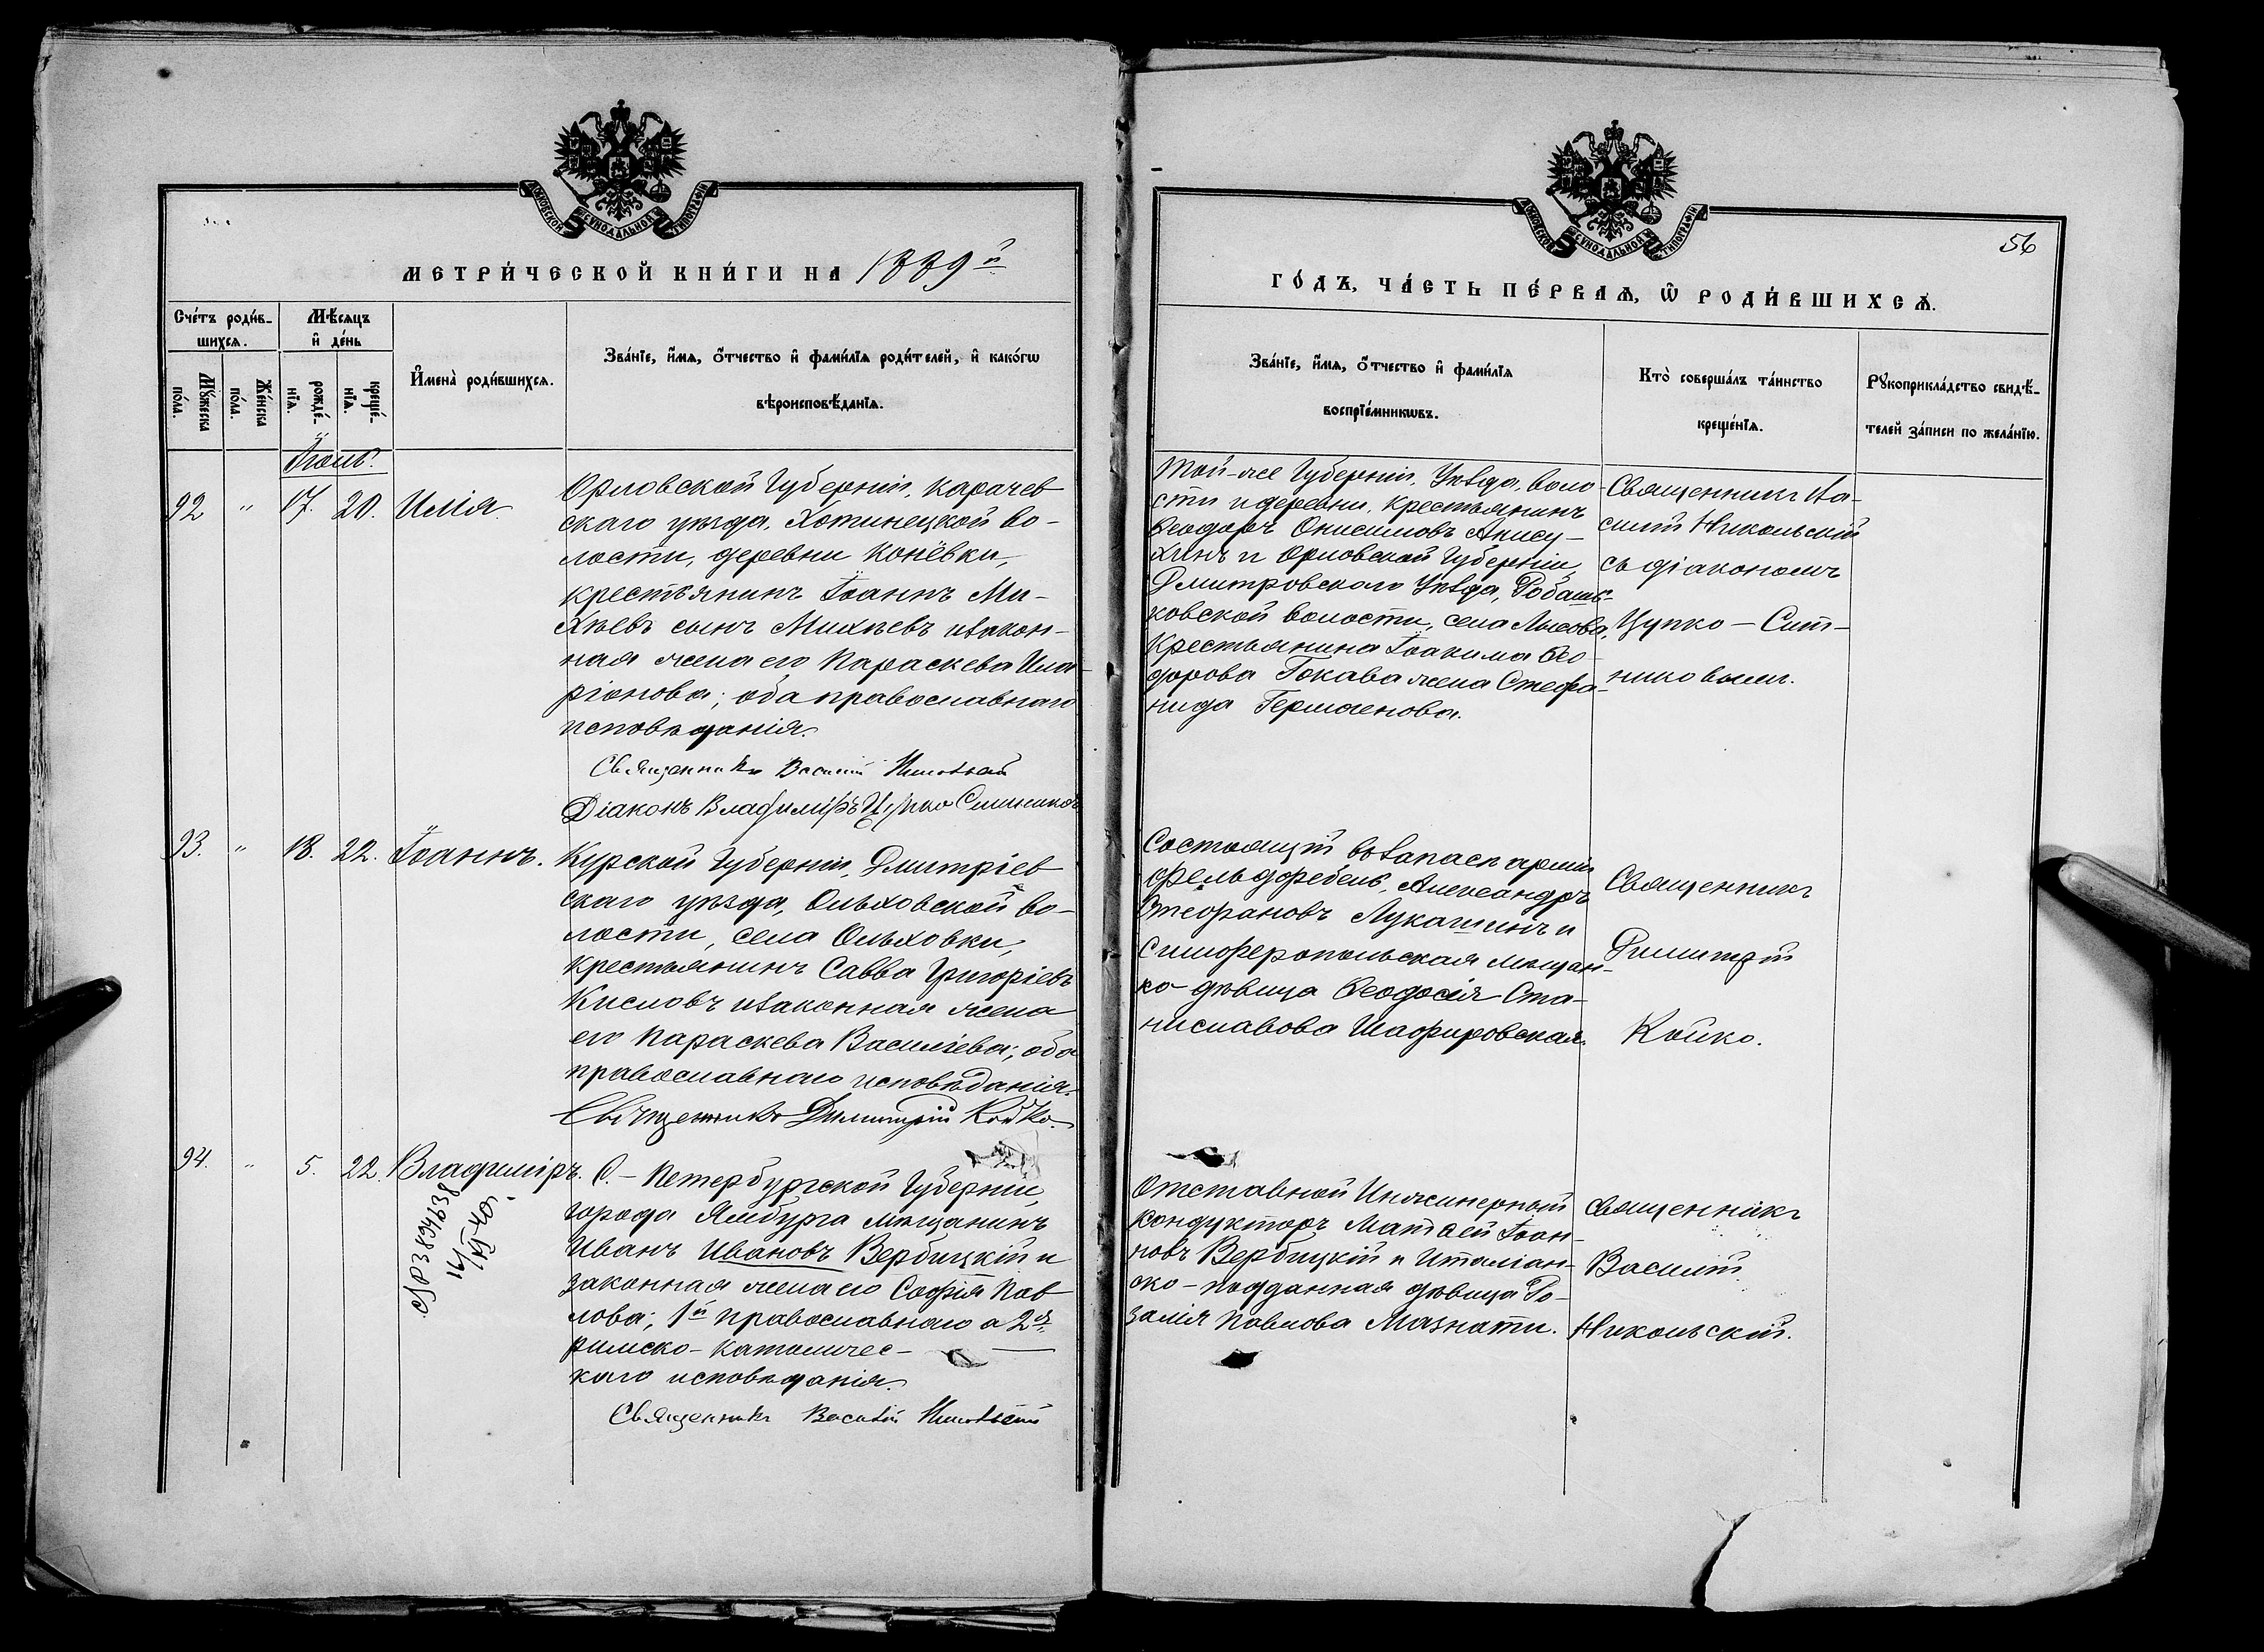 МОСКОВСКОЙ СУНОДАЛЬНОЙ ТИПОГРАФІИ
МЕТРИ́ЧЕСКОЙ КНИ́ГИ НА 1889й
Сче́тъ роди́в-
шихсѧ.
Мѣ́сѧцъ
и҆ де́нь
Мꙋ́жеска
по́ла.
Же́нска
по́ла.
рожде́-
нїѧ.
креще́-
нїѧ.
И҆мена̀ роди́вшихсѧ.
Зва́нїе, и҆́мѧ, ѻ҆́тчество и҆ фами́лїѧ роди́телей, и҆ како́гѡ
вѣроисповѣ́данїѧ.
Іюнь.
92 " 17. 20. Илія.
Орловской Губерніи, Карачев
скаго уѣзда, Хотинецкой во-
лости, деревни Конёвки,
крестьянинъ Іоаннъ Ми-
хѣевъ сынъ Михѣевъ и закон-
ная жена его Параскева Ила
ріонова; оба православнаго
исповѣданія.
Священникъ Василій Никольскій
Діаконъ Владиміръ Цупко Ситников
93. " 18. 22. Іоаннъ.
Курской Губерніи, Дмитріев
скаго уѣзда, Ольховской во-
лости, села Ольховки,
крестьянинъ Савва Григоріевъ
Кисловъ и законная жена
его Параскева Василіева; оба
православнаго исповѣданія.
Священникъ Димитрій Койко.
94. " 5. 22. Владиміръ.
С.-Петербургской Губерніи,
города Ямбурга мѣщанинъ
Иванъ Ивановъ Вербицкій и
законная жена его Софія Пав
лова; 1й православнаго а 2я
римско-католичес-
каго исповѣданія.
Священникъ Василій Никольскій
56
ГО́ДЪ, ЧА́СТЬ ПЕ́РВАѦ, Ѽ РОДИ́ВШИХСѦ.
Зва́нїе, и҆́мѧ, ѻ҆́тчество и҆ фами́лїѧ
воспрїе́мникѡвъ.
Кто̀ соверша́лъ та́инство
креще́нїѧ.
Рꙋкоприкла́дство свидѣ́-
телей за́писи по жела́нїю.
Той-же Губерніи, Уѣзда, воло
сти и деревни, крестьянинъ
Ѳеодоръ Онисимовъ
и Орловской Губерніи,
Дмитровскаго Уѣзда,
ковской волости, села Лысова,
крестьянина Іоакима Ѳео-
дорова жена Стефа-
нида
Священникъ Ва-
силій Никольскій
съ діакономъ
Цупко-Сит-
никовымъ.
Состоящій въ запасѣ арміи
фельдфебель, Александръ
Стефановъ Лукашинъ и
Симферопольская мѣщан-
ка-дѣвица Ѳеодосія Ста-
ниславова Шафировская.
Священникъ
Димитрій
Койко.
Отставной Инженерный
кондукторъ Матѳей Іоан-
новъ Вербицкій и Италіан-
ско-подданная дѣвица Ро-
залія Павлова
Священникъ
Василій
Никольскій.